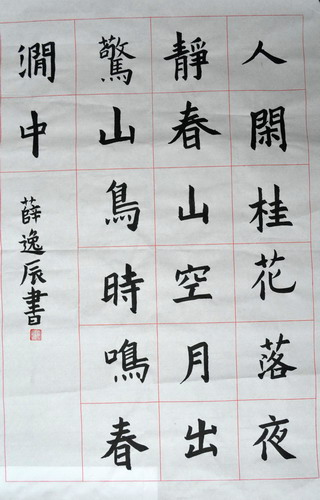 人閑桂花落夜
靜春山空月出
驚山鳥時鳴春
澗中
薛逸辰書